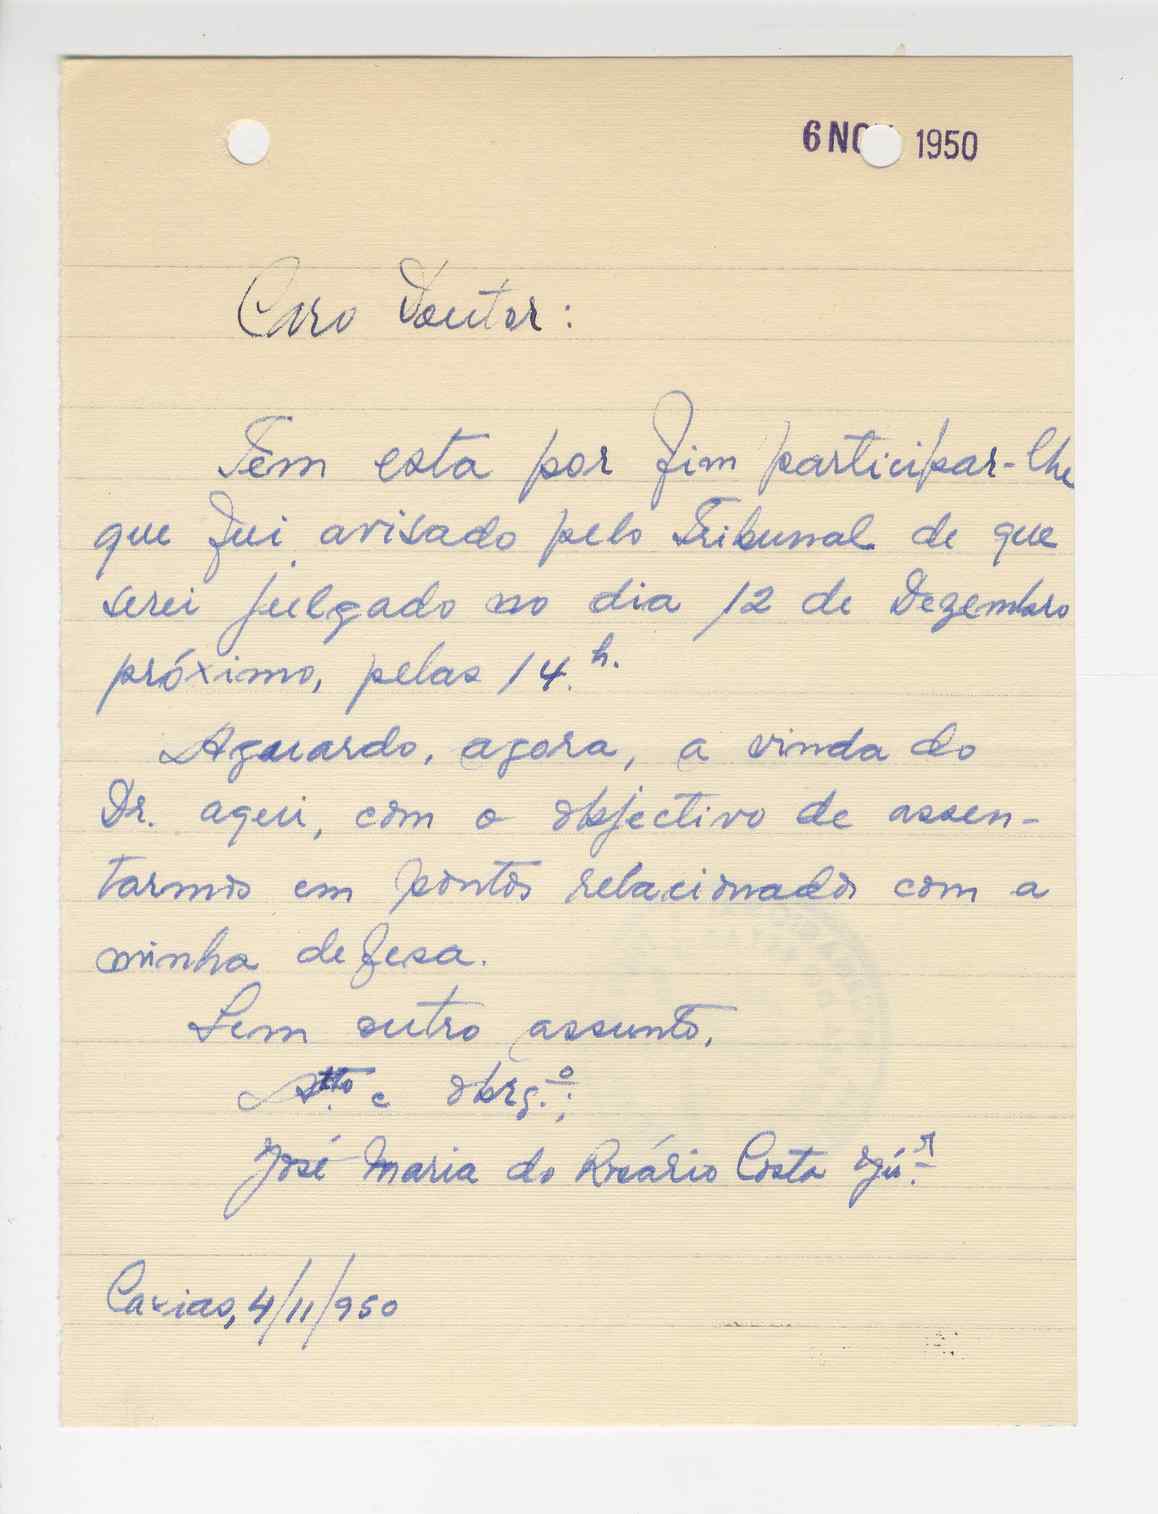 6 NOV 1950
Caro Doutor:
Tem esta por fim participar-lhe
que fui avisado pelo Tribunal de que
serei julgado no dia 12 de Dezembro
próximo, pelas 14.h.
Aguardo, agora, a vinda do
Dr. aqui, com o objectivo de assen-
tarmos em pontos relacionados com a
minha defesa.
Sem outro assunto,
Atto. e obrg.º;
José Maria do Rosário Costa Jú.r
Caxias, 4/11/950